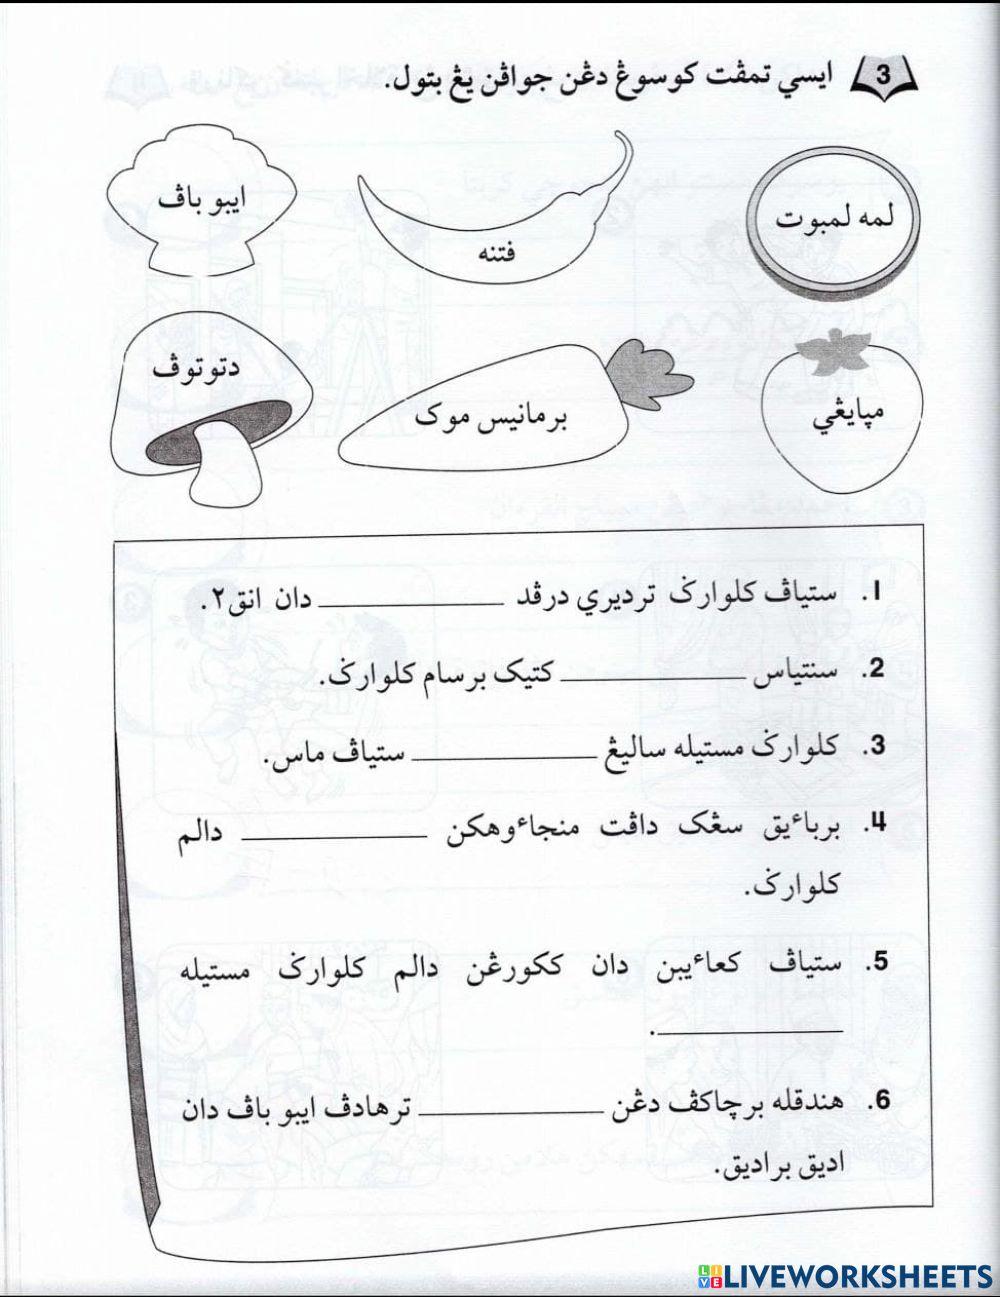 3 ايسي تمڤت كوسوڠ دڠن جواڤن يڠ بتول.
لمه لمبوت
فتنه
ايبو باڤ
مڽايڠي
برمانيس موک
دتوتوڤ
1. ستياڤ كلوارݢ ترديري درڤد ____________ دان انق٢.
2. سنتياس ____________ كتيک برسام كلوارݢ.
3. كلوارݢ مستيله ساليڠ ____________ ستياڤ ماس.
4. برباءيق سڠک داڤت منجاءوهكن ____________ دالم
كلوارݢ.
5. ستياڤ كعاءيبن دان ككورڠن دالم كلوارݢ مستيله
____________.
6. هندقله برچاكڤ دڠن ____________ ترهادڤ ايبو باڤ دان
اديق براديق.
LIVEWORKSHEETS